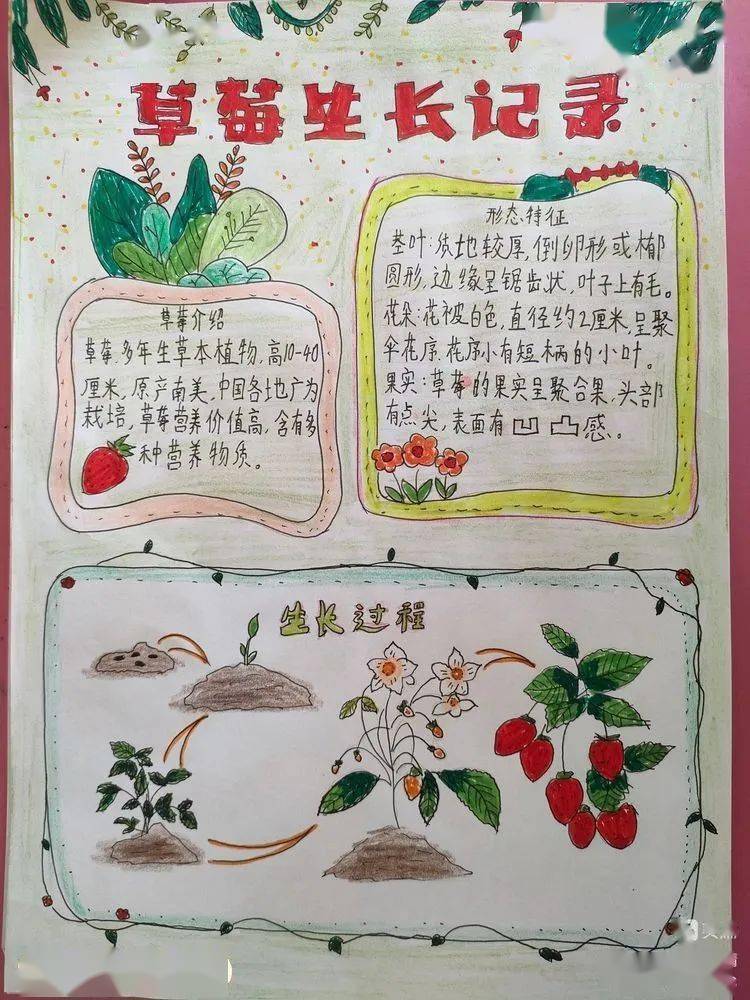 草莓生长记录
草莓介绍
草莓,多年生草本植物,高10-40
厘米,原产南美,中国各地广为
栽培,草莓营养价值高,含有多
种营养物质。
形态特征
茎叶:质地较厚,倒卵形或椭
圆形,边缘呈锯齿状,叶子上有毛。
花朵:花被白色,直径约2厘米,呈聚
伞花序,花序小有短柄的小叶。
果实:草莓的果实呈聚合果,头部
有点尖,表面有凹凸感。
生长过程